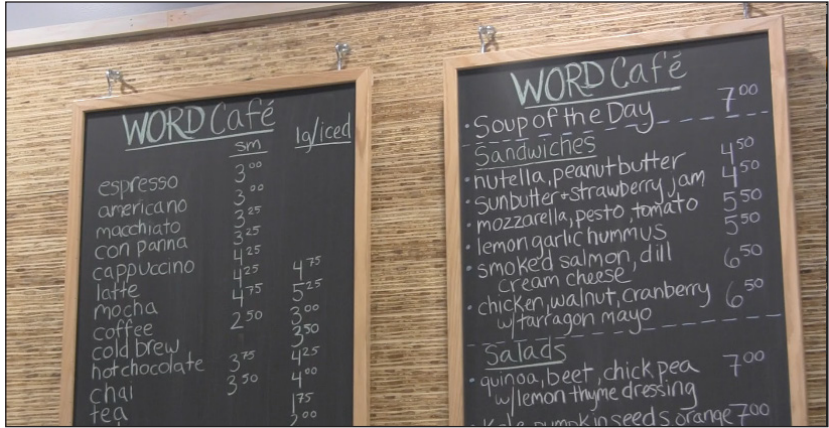 WORD Café
sm lg/iced
espresso 3⁰⁰
americano 3⁰⁰
macchiato 3²⁵
con panna 3²⁵
cappuccino 4²⁵
latte 4²⁵ 4⁷⁵
mocha 4⁷⁵ 5²⁵
coffee 2⁵⁰ 3⁰⁰
cold brew 3⁵⁰
hot chocolate 3⁷⁵ 4²⁵
chai 3⁵⁰ 4⁰⁰
tea
WORD Café
• Soup of the Day 7⁰⁰
Sandwiches
• nutella, peanut butter 4⁵⁰
• sunbutter + strawberry jam 4⁵⁰
• mozzarella, pesto, tomato 5⁵⁰
• lemon garlic hummus 5⁵⁰
• smoked salmon, dill 6⁵⁰
cream cheese
• chicken, walnut, cranberry 6⁵⁰
w/ tarragon mayo
Salads
• quinoa, beet, chick pea 7⁰⁰
w/ lemon thyme dressing
• Kale pumpkin seeds orange 7⁰⁰